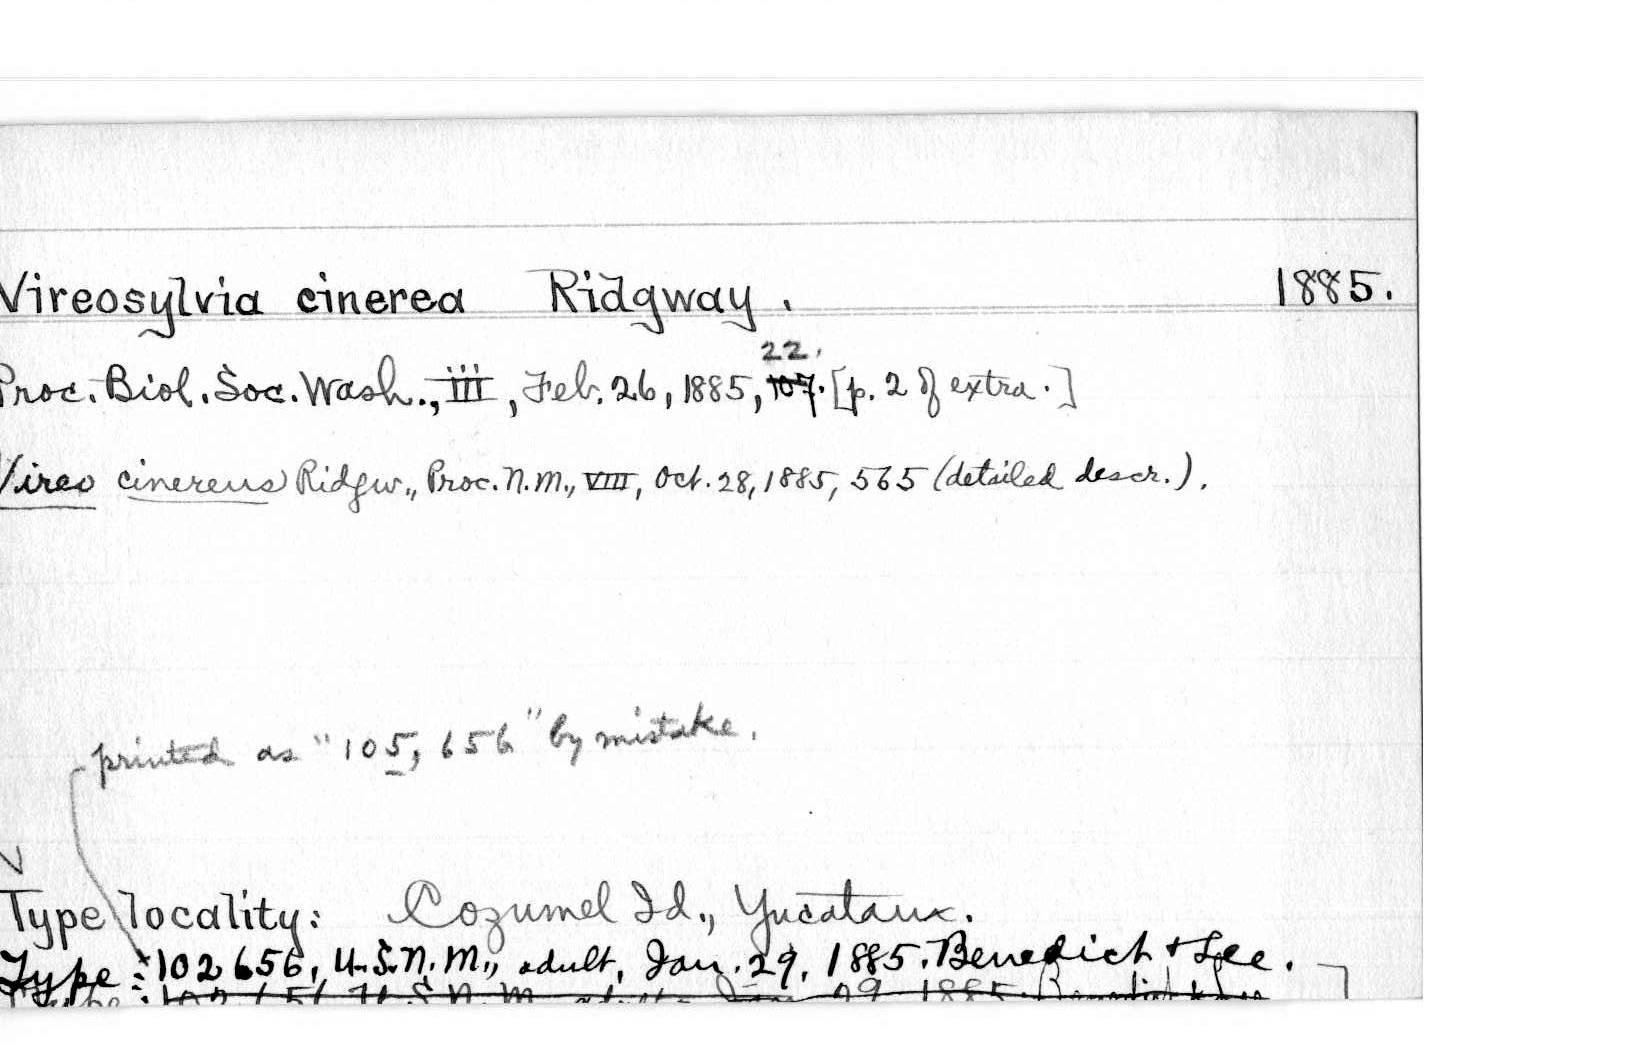 Vireosylvia cinerea Ridgway. 1885.
22.
Proc. Biol. Soc. Wash., III, Feb. 26, 1885, 107. [p. 2 of extra.]
Vireo cinereus Ridgw., Proc. N.M., VIII, Oct. 28, 1885, 565 (detailed descr.).
printed as "105,656" by mistake.
Type locality: Cozumel Id., Yucatan.
Type: 102656, U.S.N.M., adult, Jan. 29, 1885. Benedict & Lee.